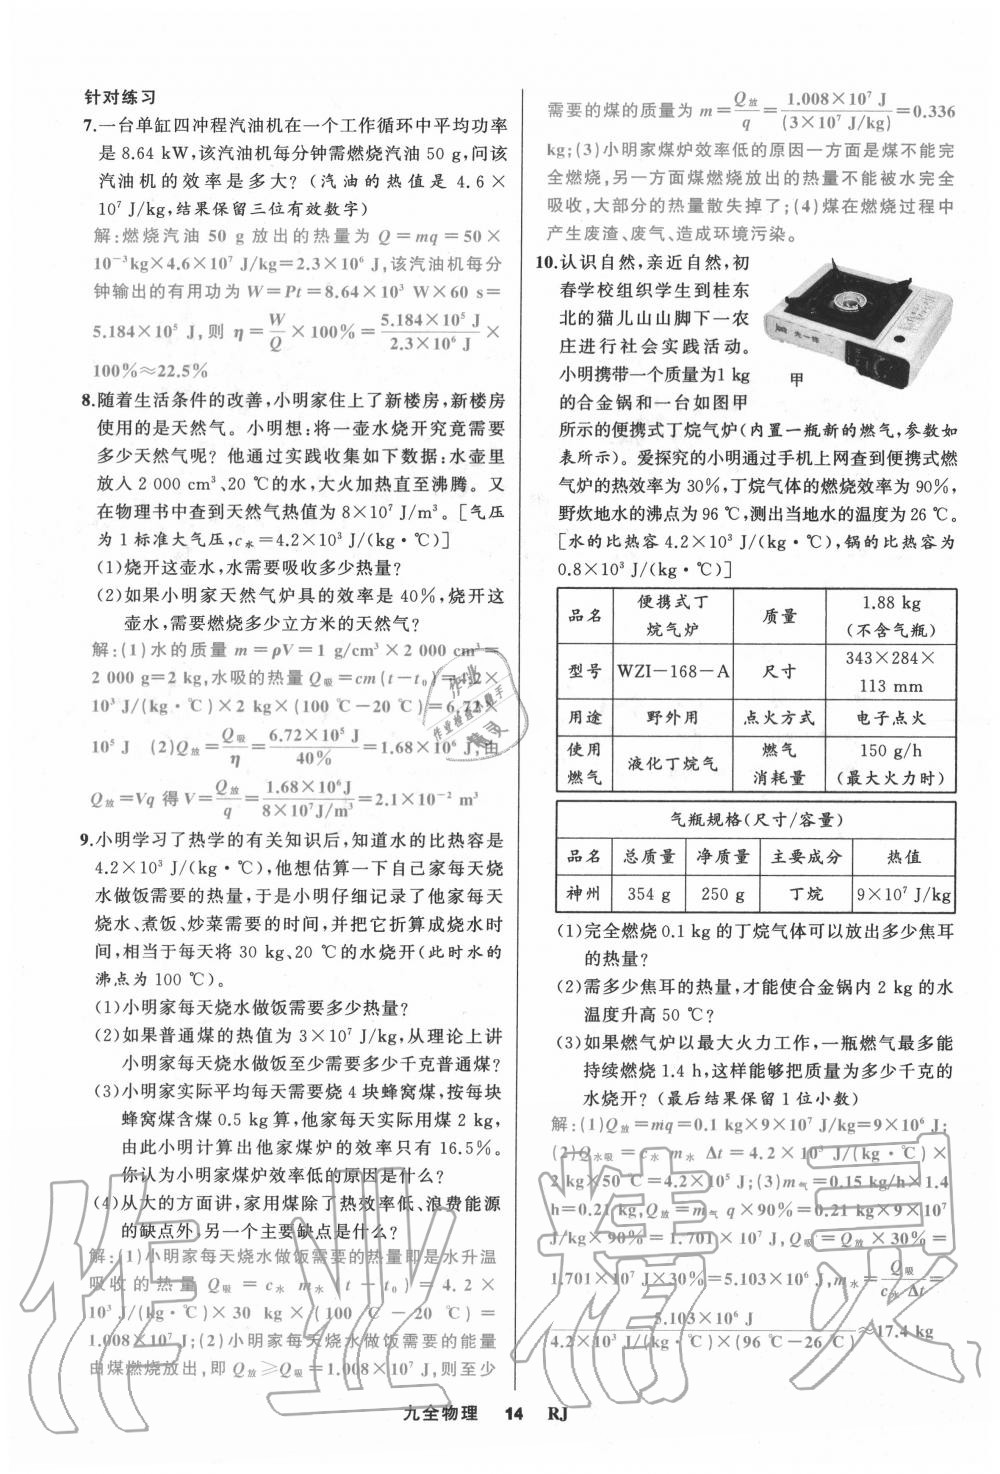 针对练习
7.一台单缸四冲程汽油机在一个工作循环中平均功率
是 8.64 kW,该汽油机每分钟需燃烧汽油 50 g,问该
汽油机的效率是多大?(汽油的热值是 4.6×
10⁷ J/kg,结果保留三位有效数字)
解:燃烧汽油 50 g 放出的热量为 Q=mq=50×
10⁻³kg×4.6×10⁷ J/kg=2.3×10⁶ J,该汽油机每分
钟输出的有用功为 W=Pt=8.64×10³ W×60 s=
5.184×10⁵ J,则 η=W/Q×100%=5.184×10⁵ J/2.3×10⁶ J×
100%≈22.5%
8.随着生活条件的改善,小明家住上了新楼房,新楼房
使用的是天然气。小明想:将一壶水烧开究竟需要
多少天然气呢? 他通过实践收集如下数据:水壶里
放入 2 000 cm³、20 ℃的水,大火加热直至沸腾。又
在物理书中查到天然气热值为 8×10⁷ J/m³。[气压
为 1 标准大气压,c水=4.2×10³ J/(kg·℃)]
(1)烧开这壶水,水需要吸收多少热量?
(2)如果小明家天然气炉具的效率是 40%,烧开这
壶水,需要燃烧多少立方米的天然气?
解:(1)水的质量 m=ρV=1 g/cm³×2 000 cm³=
2 000 g=2 kg,水吸的热量 Q吸=cm(t-t₀)=4.2×
10³ J/(kg·℃)×2 kg×(100 ℃-20 ℃)=6.72×
10⁵ J (2)Q放=Q吸/η=6.72×10⁵ J/40%=1.68×10⁶ J,由
Q放=Vq 得 V=Q放/q=1.68×10⁶J/8×10⁷J/m³=2.1×10⁻² m³
9.小明学习了热学的有关知识后,知道水的比热容是
4.2×10³ J/(kg·℃),他想估算一下自己家每天烧
水做饭需要的热量,于是小明仔细记录了他家每天
烧水、煮饭、炒菜需要的时间,并把它折算成烧水时
间,相当于每天将 30 kg、20 ℃的水烧开(此时水的
沸点为 100 ℃)。
(1)小明家每天烧水做饭需要多少热量?
(2)如果普通煤的热值为 3×10⁷ J/kg,从理论上讲
小明家每天烧水做饭至少需要多少千克普通煤?
(3)小明家实际平均每天需要烧 4 块蜂窝煤,按每块
蜂窝煤含煤 0.5 kg算,他家每天实际用煤 2 kg,
由此小明计算出他家煤炉的效率只有 16.5%。
你认为小明家煤炉效率低的原因是什么?
(4)从大的方面讲,家用煤除了热效率低、浪费能源
的缺点外,另一个主要缺点是什么?
解:(1)小明家每天烧水做饭需要的热量即是水升温
吸收的热量 Q吸=c水m水(t-t₀)=4.2×
10³ J/(kg·℃)×30 kg×(100 ℃-20 ℃)=
1.008×10⁷ J;(2)小明家每天烧水做饭需要的能量
由煤燃烧放出,即 Q放≥Q吸=1.008×10⁷ J,则至少
需要的煤的质量为 m=Q放/q=1.008×10⁷ J/(3×10⁷ J/kg)=0.336
kg;(3)小明家煤炉效率低的原因一方面是煤不能完
全燃烧,另一方面煤燃烧放出的热量不能被水完全
吸收,大部分的热量散失掉了;(4)煤在燃烧过程中
产生废渣、废气、造成环境污染。
10.认识自然,亲近自然,初
春学校组织学生到桂东
北的猫儿山山脚下一农
庄进行社会实践活动。
小明携带一个质量为1 kg
的合金锅和一台如图甲
甲
所示的便携式丁烷气炉(内置一瓶新的燃气,参数如
表所示)。爱探究的小明通过手机上网查到便携式燃
气炉的热效率为 30%,丁烷气体的燃烧效率为 90%,
野炊地水的沸点为 96 ℃,测出当地水的温度为 26 ℃。
[水的比热容 4.2×10³ J/(kg·℃),锅的比热容为
0.8×10³ J/(kg·℃)]
品名 便携式丁烷气炉 质量 1.88 kg(不含气瓶)
型号 WZI-168-A 尺寸 343×284×113 mm
用途 野外用 点火方式 电子点火
使用燃气 液化丁烷气 燃气消耗量 150 g/h(最大火力时)
气瓶规格(尺寸/容量)
品名 总质量 净质量 主要成分 热值
神州 354 g 250 g 丁烷 9×10⁷ J/kg
(1)完全燃烧 0.1 kg 的丁烷气体可以放出多少焦耳
的热量?
(2)需多少焦耳的热量,才能使合金锅内 2 kg 的水
温度升高 50 ℃?
(3)如果燃气炉以最大火力工作,一瓶燃气最多能
持续燃烧 1.4 h,这样能够把质量为多少千克的
水烧开?(最后结果保留 1 位小数)
解:(1)Q放=mq=0.1 kg×9×10⁷ J/kg=9×10⁶ J;
(2)Q水吸=c水m水Δt=4.2×10³ J/(kg·℃)×
2 kg×50 ℃=4.2×10⁵ J;(3)m气=0.15 kg/h×1.4
h=0.21 kg,Q放=m气q×90%=0.21 kg×9×10⁷
J/kg×90%=1.701×10⁷ J,Q吸=Q放×30%=
1.701×10⁷ J×30%=5.103×10⁶ J,m水=Q吸/c水Δt=
5.103×10⁶ J/4.2×10³ J/(kg·℃)×(96 ℃-26 ℃)≈17.4 kg
九全物理 14 RJ
作业精灵